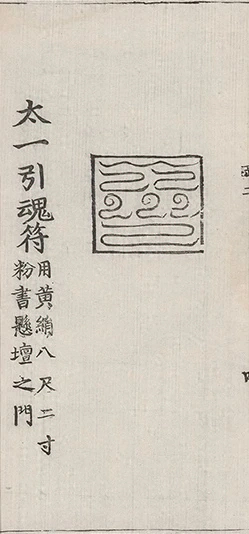 太一引魂符
用黄絹八尺二寸
粉書懸壇之門